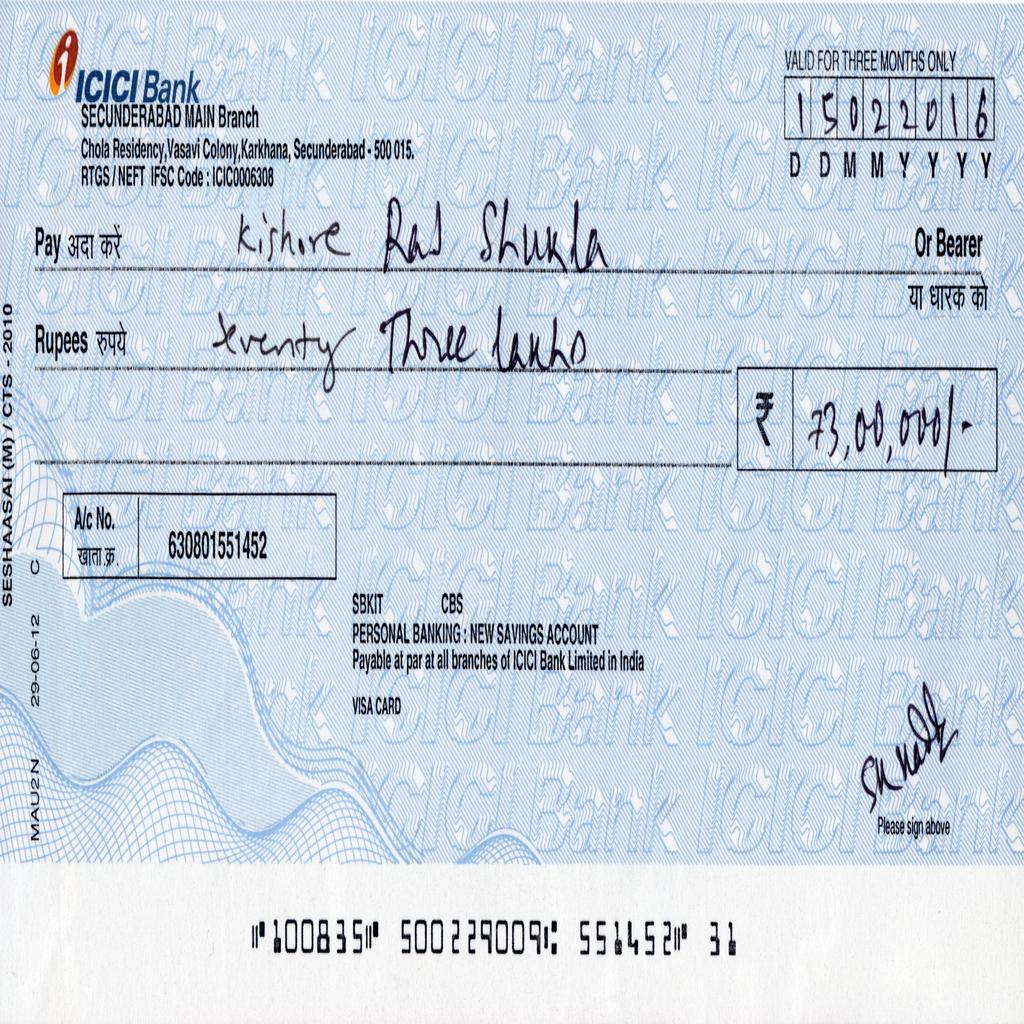 ICICI Bank
SECUNDERABAD MAIN Branch
Chola Residency, Vasavi Colony, Karkhana, Secunderabad - 500 015.
RTGS / NEFT IFSC Code : ICIC0006308
VALID FOR THREE MONTHS ONLY
15022016
D D M M Y Y Y Y
Pay अदा करें Kishore Raj Shukla Or Bearer
या धारक को
Rupees रुपये Three lakhs
₹ 73,00,000/-
A/c No.
खाता.क्र.
630801551452
SBKIT CBS
PERSONAL BANKING : NEW SAVINGS ACCOUNT
Payable at par at all branches of ICICI Bank Limited in India
VISA CARD
Please sign above
SESHAASAI (M) / CTS - 2010
MAU2N 29-06-12 C
⑈100835⑈ 500229009⑆ 551452⑈ 31